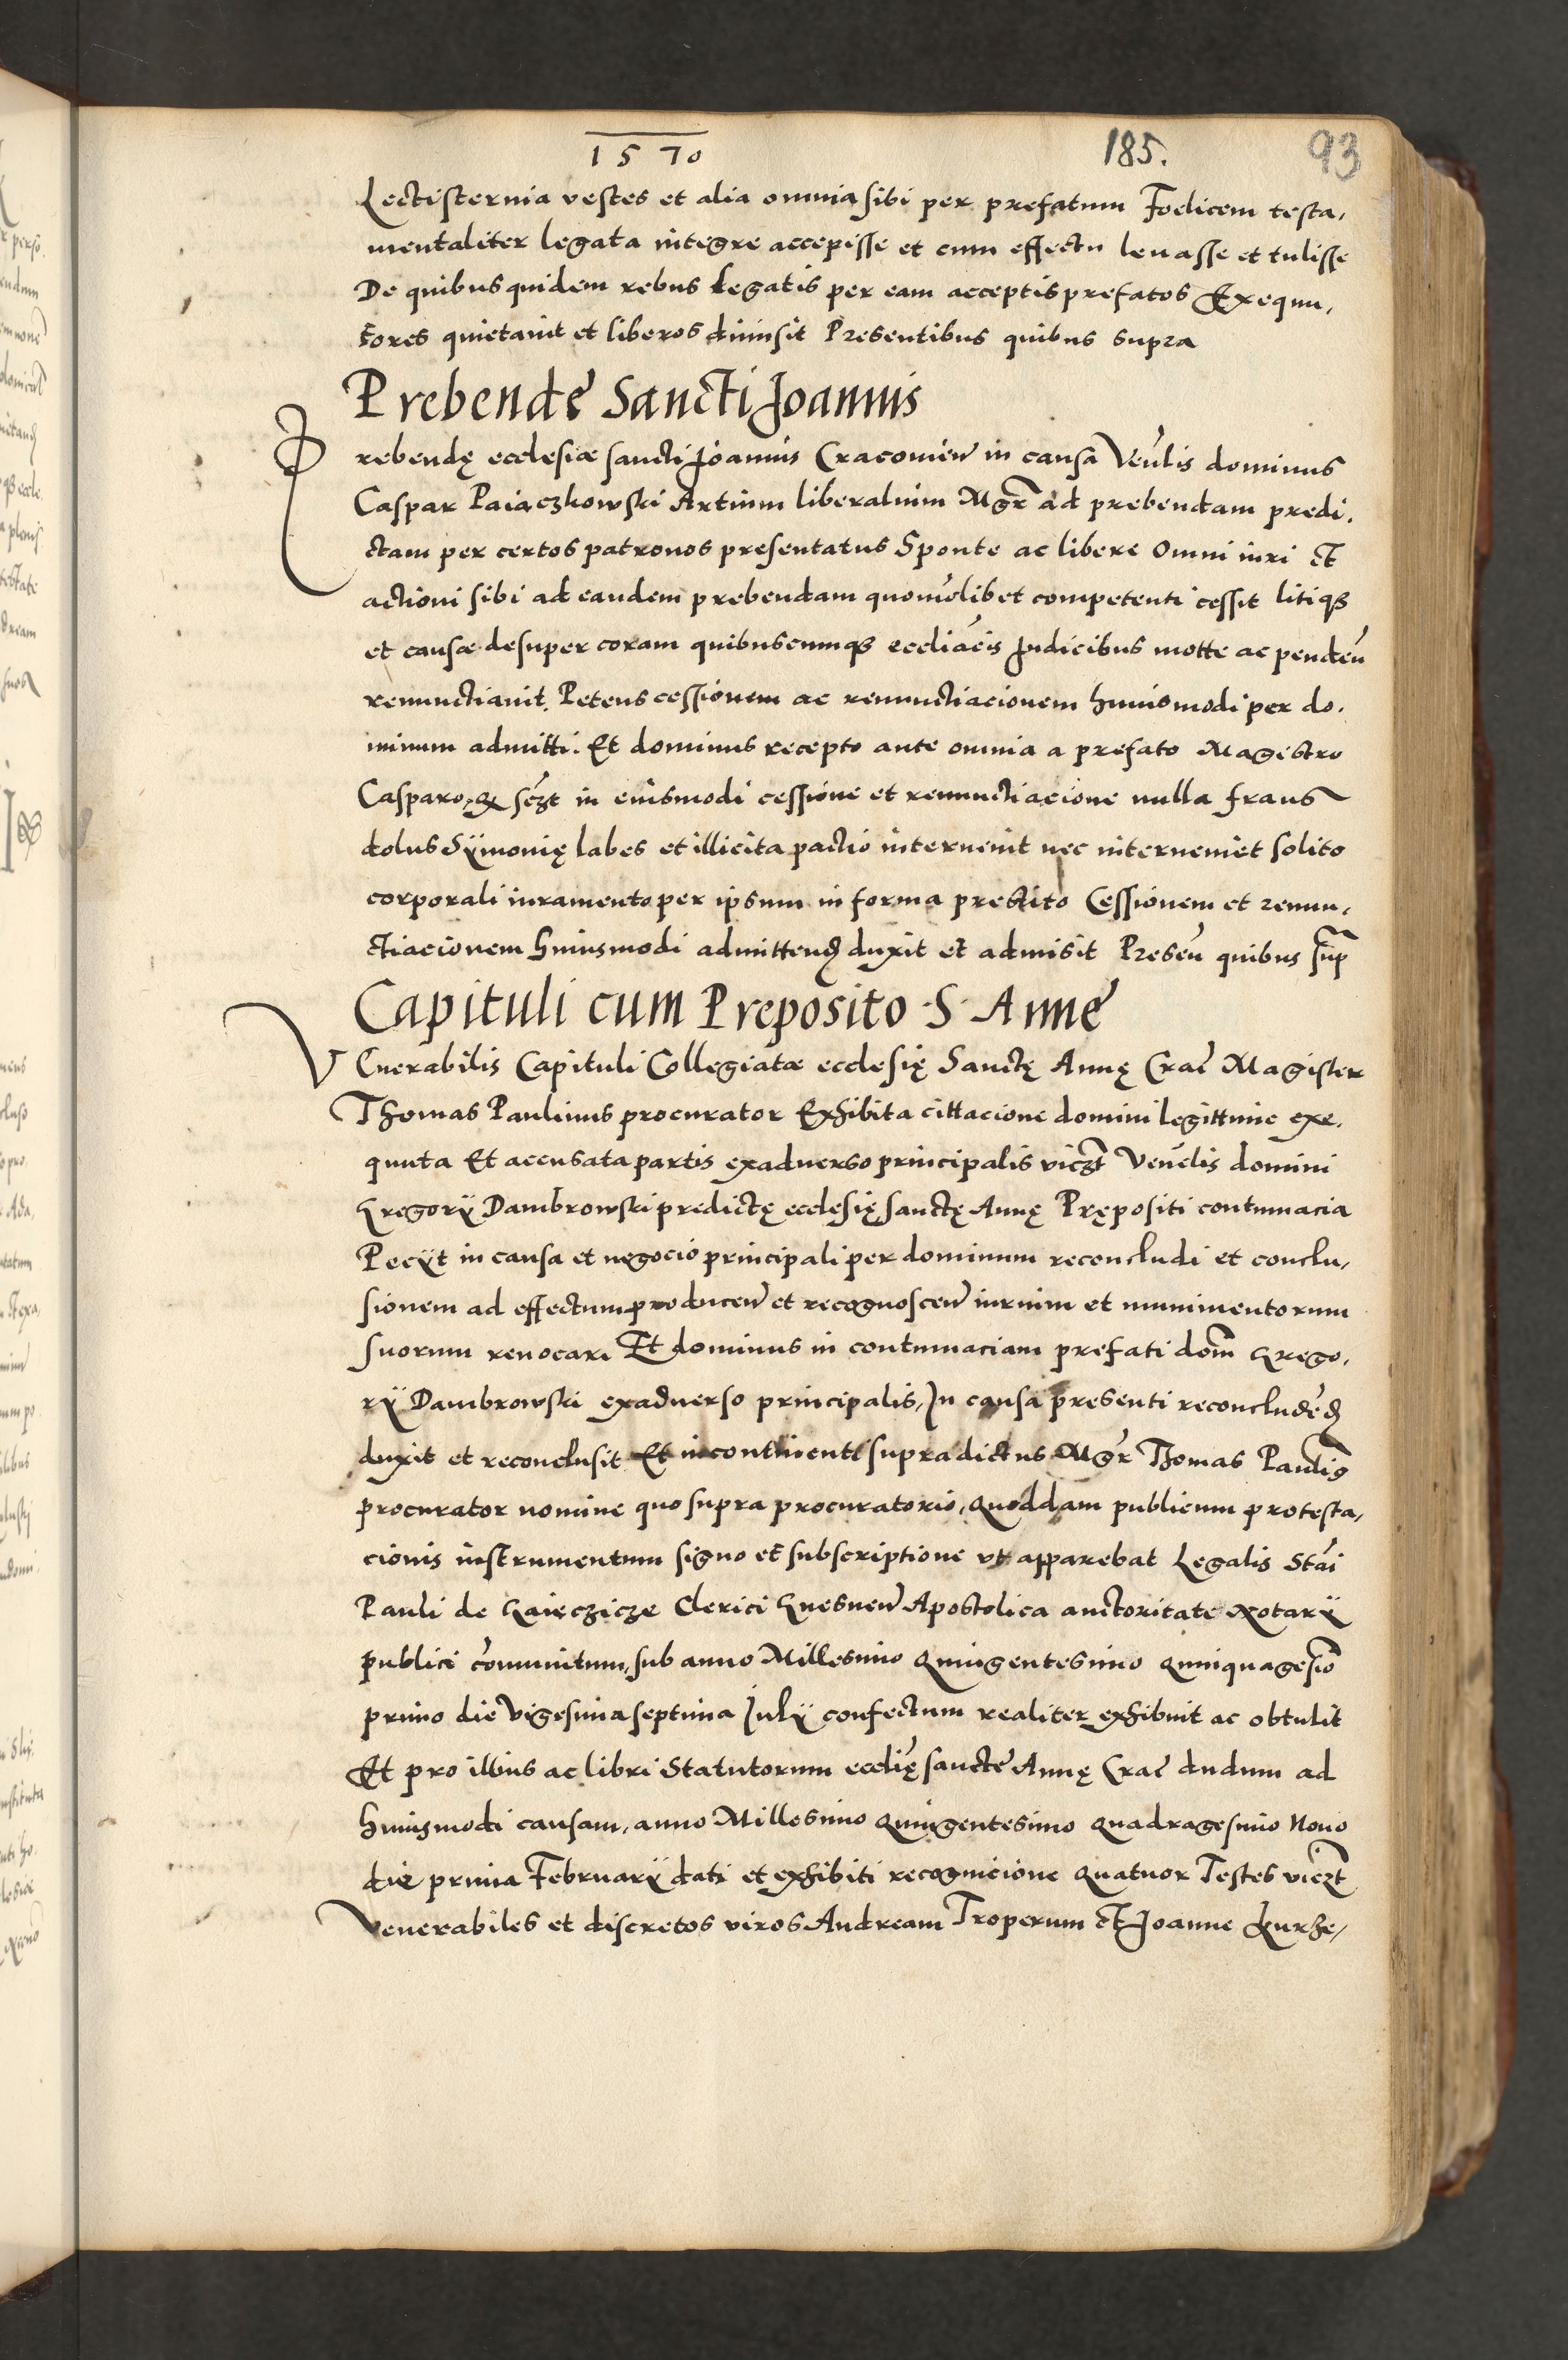 1570 185. 93
Lectisternia vestes et alia omnia sibi per prefatum Foelicem testa,
mentaliter legata integre accepisse et cum effectu leuasse et tulisse
De quibus quidem rebus Legatis per eam acceptis prefatos Exequu,
tores quietauit et liberos dimisit Presentibus quibus supra
Prebende Sancti Joannis
Prebendę ecclesiæ sancti Joannis Cracouien in causa Venlis dominus
Caspar Paiaczkowski Artium liberalium Mgr ad prebendam predi,
ctam per certos patronos presentatus Sponte ac libere Omni iuri et
actioni sibi ad eandem prebendam quomolibet competenti cessit litiqȝ
et causæ desuper coram quibuscumqȝ eccliacis Judicibus motte ac penden
renunctiauit. Petens cessionem ac renunctiacionem huiusmodi per do,
minum admitti. Et dominus recepto ante omnia a prefato Magistro
Casparo, sczt in eiusmodi cessione et renunctiacione nulla fraus
dolus Sÿmonię labes et illicita pactio interuenit nec interueniet solito
corporali iuramento per ipsum in forma prestito Cessionem et renun,
ctiacionem huiusmodi admittend duxit et admisit Presen quibus sup
Capituli cum Preposito S. Anne
Venerabilis Capituli Collegiatæ ecclesię Sanctę Annę Crac Magister
Thomas Paulinus procurator Exhibita cittacione domini legittime exe,
quuta Et accusata partis exaduerso principalis viczt Venelis domini
Gregorÿ Dambrowski predictę ecclesię sanctę Annę Prępositi contumacia
Peciit in causa et negocio principali per dominum reconcludi et conclu,
sionem ad effectum producen et recognoscen iurium et munimentorum
suorum reuocari Et dominus in contumaciam prefati dom Grego,
rÿ Dambrowski exaduerso principalis, In causa presenti reconcluded
duxit et reconclusit Et incontinenti supradictus Mgr Thomas Paulin9
procurator nomine quo supra procuratorio, quoddam publicum protesta,
cionis instrumentum signo et subscriptione vt apparebat Legalis Stai
Pauli de Gaieczicze Clerici Gnesnen Apostolica auctoritate Notarÿ
publici comunitum, sub anno Millesimo Quingentesimo Quinquagesio
primo die Vigesima septima Julÿ confectum realiter exhibuit ac obtulit
Et pro illius ac libri Statutorum ecclię sancte Annę Crac dudum ad
huiusmodi causam, anno Millesimo Quingentesimo Quadragesimo Nono
die prima Februarÿ dati et exhibiti recognicione Quatuor Testes viczt
Venerabiles et discretos viros Andream Troperum et Joanne Kurze,